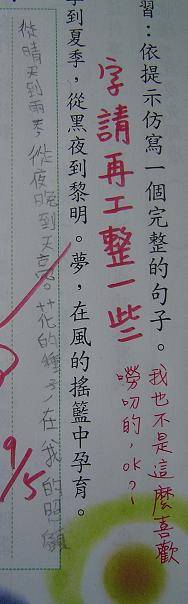 習：依提示仿寫一個完整的句子。
我也不是這麼喜歡
嘮叨的，ok？
字請再工整一些
到夏季，從黑夜到黎明。夢，在風的搖籃中孕育。
從晴天到雨天，從夜晚到天亮。花的種子，在我的照顧
9/5